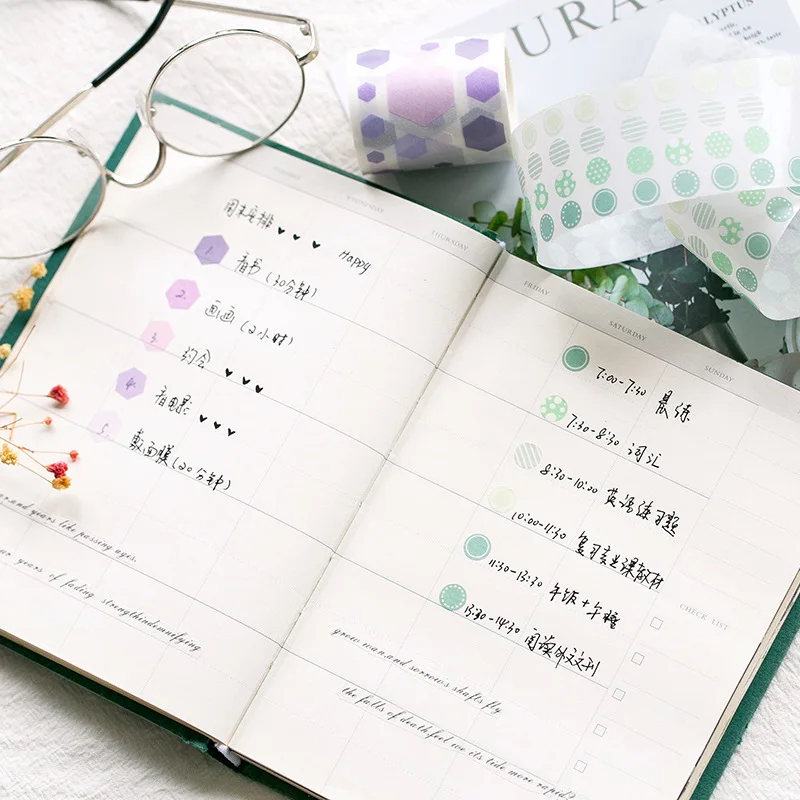 URA
LYPTUS
WEDNESDAY
THURSDAY
周末安排
Happy
1. 看书(30分钟)
2. 画画(2小时)
3. 约会
4. 看电影
5. 敷面膜(20分钟)
and years like passing ages.
years of fading strengthindemnifying
FRIDAY
SATURDAY
SUNDAY
7:00-7:30 晨练
7:30-8:30 词汇
8:30-10:00 英语练习题
10:00-11:30 复习专业课教材
11:30-13:30 午饭+午睡
13:30-14:30 阅读外文刊
CHECK LIST
grow wan,and sorrow's shafts fly
the falls of death,feel we its tide more rapid?